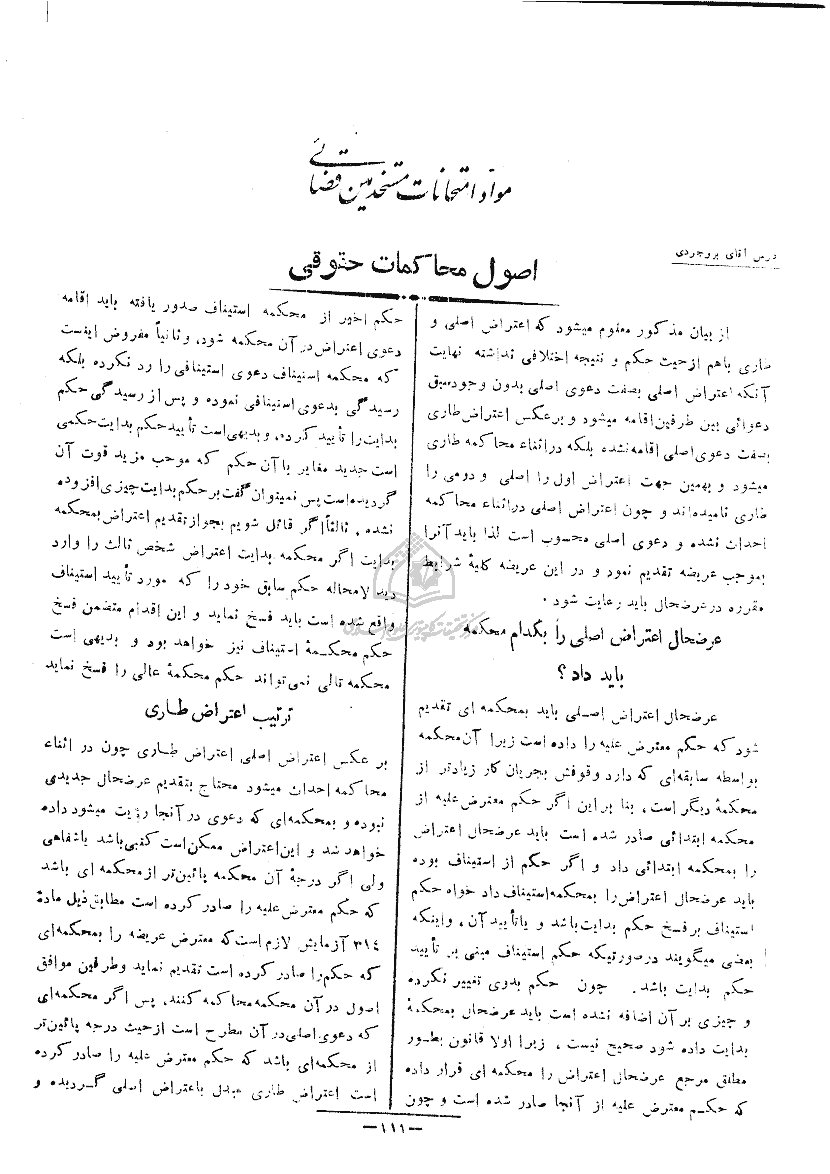 مواد امتحانات مستخدمین قضائی
درس آقای بروجردی
اصول محاکمات حقوقی
از بیان مذکور معلوم میشود که اعتراض اصلی و
طاری باهم ازحیث حکم و نتیجه اختلافی نداشته نهایت
آنکه اعتراض اصلی بصفت دعوی اصلی بدون وجود سبق
دعوائی بین طرفین اقامه میشود و برعکس اعتراض طاری
بصفت دعوی اصلی اقامه نشده بلکه دراثناء محاکمه طاری
میشود و بهمین جهت اعتراض اول را اصلی و دومی را
طاری نامیده‌اند و چون اعتراض اصلی دراثناء محاکمه
احداث نشده و دعوی اصلی محسوب است لذا باید آنرا
بموجب عریضه تقدیم نمود و در این عریضه کلیهٔ شرایط
مقرره در عرضحال باید رعایت شود .
عرضحال اعتراض اصلی را بکدام محکمه
باید داد ؟
عرضحال اعتراض اصلی باید بمحکمه ای تقدیم
شود که حکم معترض علیه را داده است زیرا آن محکمه
بواسطه سابقه‌ای که دارد وقوفش بجریان کار زیادتر از
محکمهٔ دیگر است ، بنا بر این اگر حکم معترض علیه از
محکمه ابتدائی صادر شده است باید عرضحال اعتراض
را بمحکمه ابتدائی داد و اگر حکم از استیناف بوده
باید عرضحال اعتراض را بمحکمه استیناف داد خواه حکم
استیناف بر فسخ حکم بدایت باشد و یا تأیید آن ، واینکه
بعضی میگویند درصورتیکه حکم استیناف مبنی بر تأیید
حکم بدایت باشد . چون حکم بدوی تغییر نکرده
و چیزی بر آن اضافه نشده است باید عرضحال بمحکمهٔ
بدایت داده شود صحیح نیست ، زیرا اولا قانون بطور
مطلق مرجع عرضحال اعتراض را محکمه ای قرار داده
که حکم معترض علیه از آنجا صادر شده است و چون
حکم اخیر از محکمه استیناف صدور یافته باید اقامه
دعوی اعتراض در آن محکمه شود، وثانیاً مفروض اینست
که محکمه استیناف دعوی استینافی را رد نکرده بلکه
رسیدگی بدعوی استینافی نموده و پس از رسیدگی حکم
بدایت را تأیید کرده، و بدیهی است تأیید حکم بدایت حکمی
است جدید مغایر با آن حکم که موجب مزید قوت آن
گردیده است پس نمیتوان گفت بر حکم بدایت چیزی افزوده
نشده . ثالثاً اگر قائل شویم بجواز تقدیم اعتراض بمحکمه
بدایت اگر محکمه بدایت اعتراض شخص ثالث را وارد
دید لامحاله حکم سابق خود را که مورد تأیید استیناف
واقع شده است باید فسخ نماید و این اقدام متضمن فسخ
حکم محکمهٔ استیناف نیز خواهد بود و بدیهی است
محکمه تالی نمی‌تواند حکم محکمهٔ عالی را فسخ نماید
ترتیب اعتراض طاری
بر عکس اعتراض اصلی اعتراض طاری چون در اثناء
محاکمه احداث میشود محتاج بتقدیم عرضحال جدیدی
نبوده و بمحکمه‌ای که دعوی در آنجا رؤیت میشود داده
خواهد شد و این اعتراض ممکن است کتبی باشد یا شفاهی
ولی اگر درجهٔ آن محکمه پائین‌تر از محکمه ای باشد
که حکم معترض علیه را صادر کرده است مطابق ذیل مادهٔ
۳۱۴ آزمایش لازم است که معترض عریضه را بمحکمه‌ای
که حکم را صادر کرده است تقدیم نماید وطرفین موافق
اصول در آن محکمه محاکمه کنند، پس اگر محکمه‌ای
که دعوی اصلی در آن مطرح است از حیث درجه پائین‌تر
از محکمه‌ای باشد که حکم معترض علیه را صادر کرده
است اعتراض طاری مبدل باعتراض اصلی گردیده و
—۱۱۱—